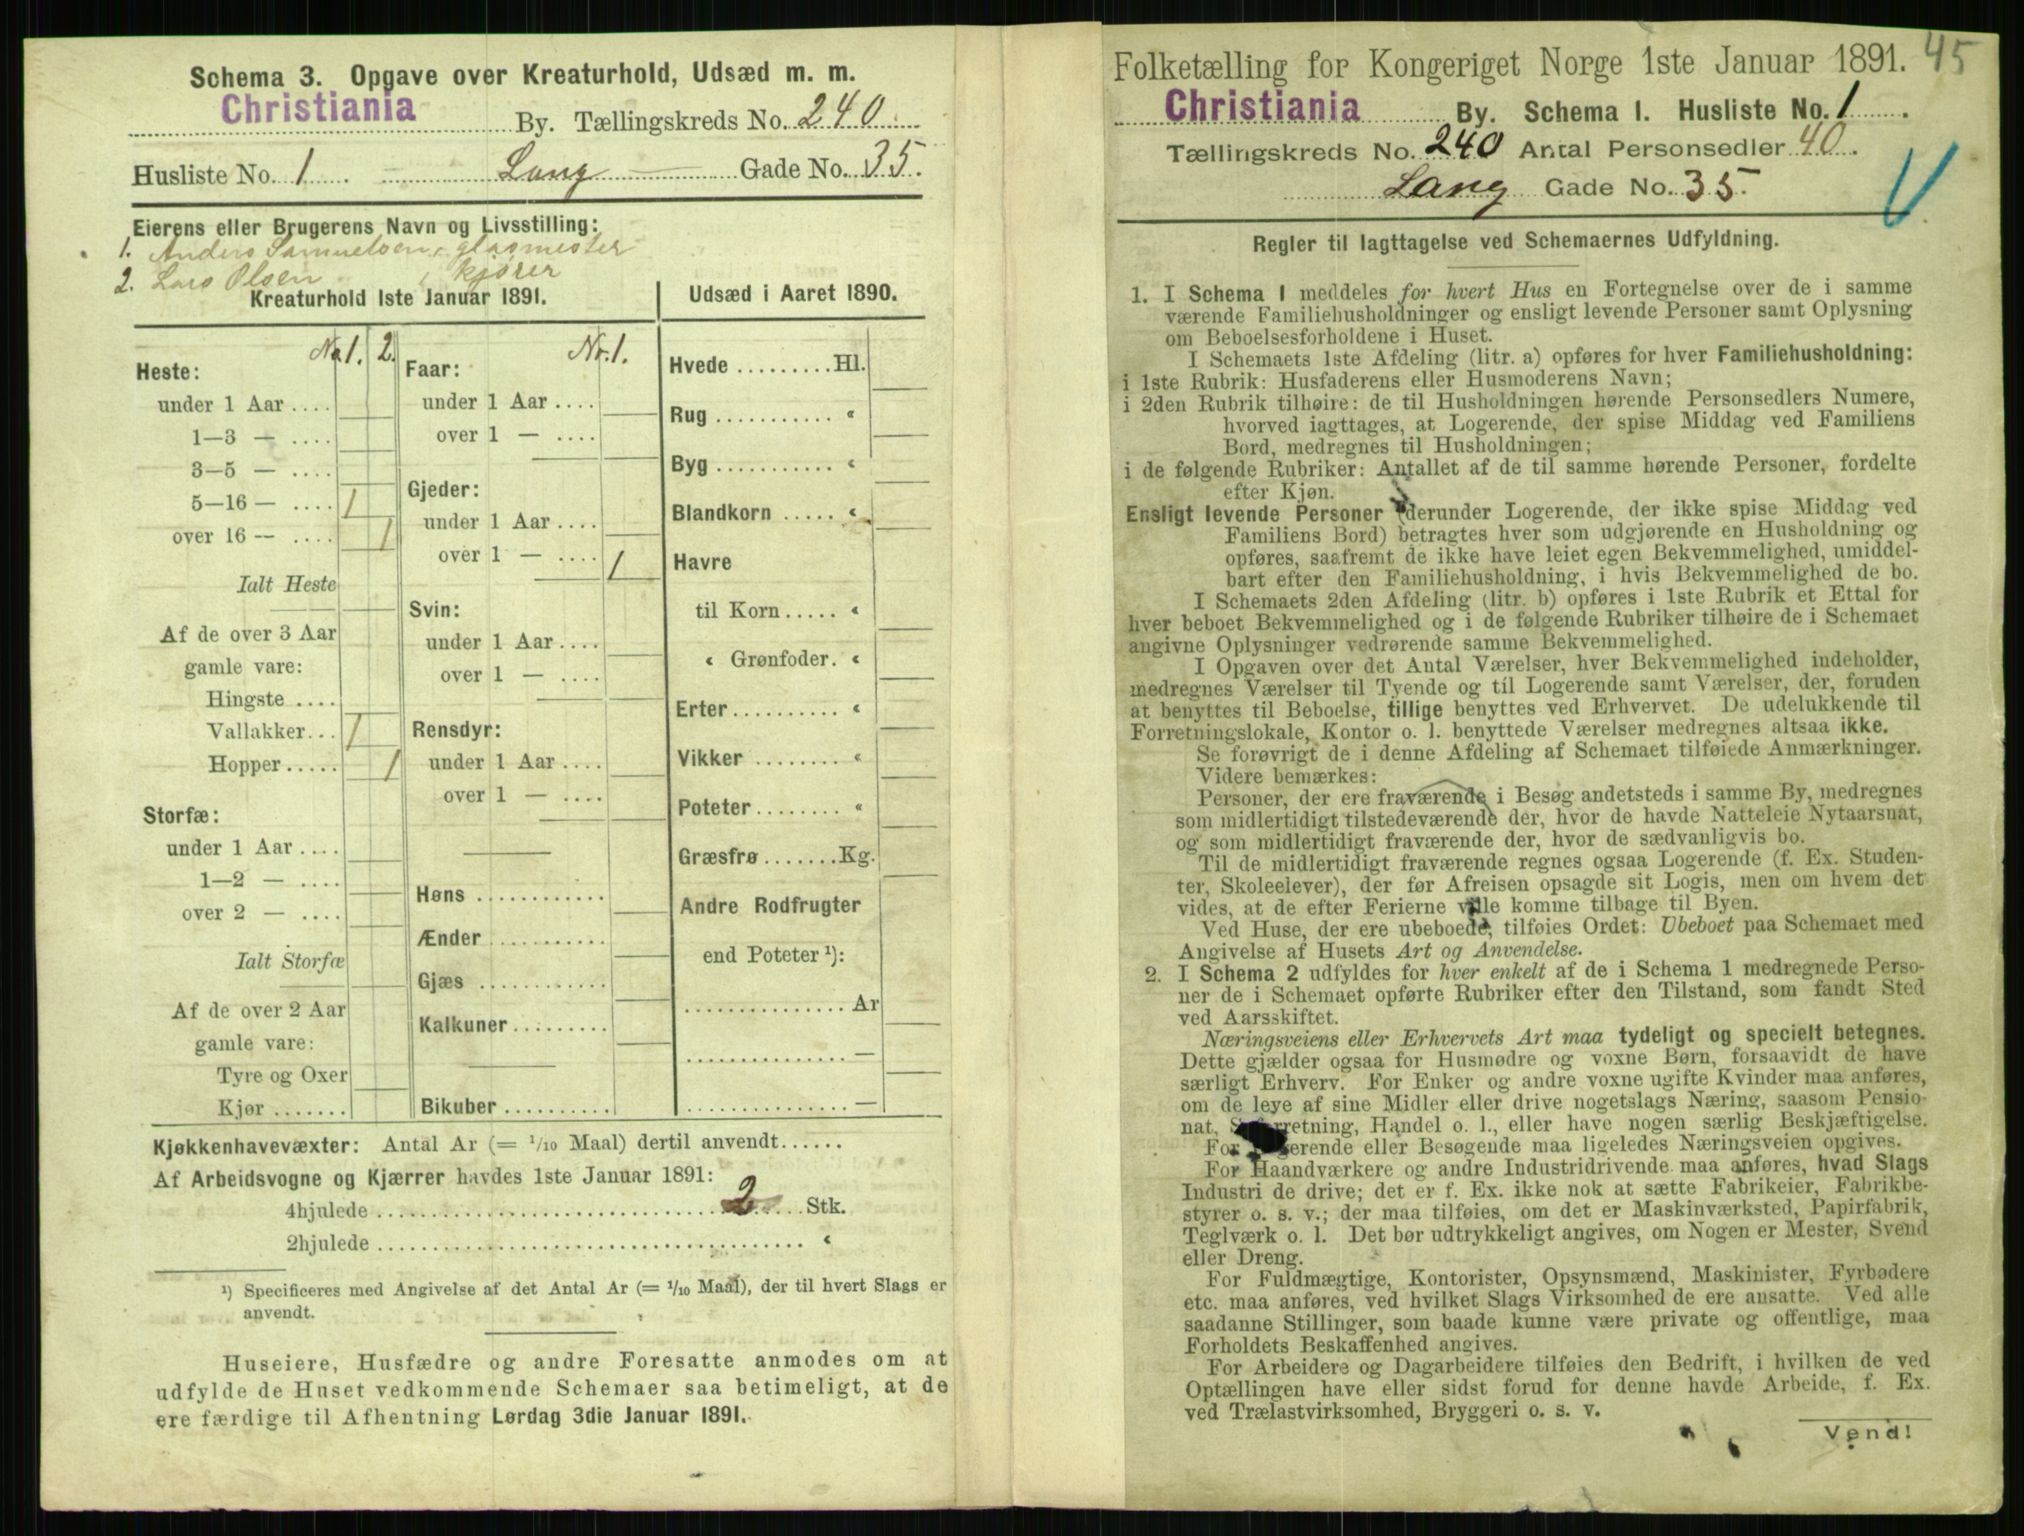 Schema 3. Opgave over Kreaturhold, Udsæd m. m.
Christiania By. Tællingskreds No. 240
Husliste No. 1 Lang Gade No. 35.
Eierens eller Brugerens Navn og Livsstilling:
1. Anders Samuelsen, glasmester
2. Lars Olsen, kjører
Kreaturhold 1ste Januar 1891.
No 1. 2.
Heste:
under 1 Aar ....
1—3 — ....
3—5 — ....
5—16 — .... 1
over 16 — .... 1
Ialt Heste
Af de over 3 Aar
gamle vare:
Hingste ....
Vallakker... 1
Hopper..... 1
Storfæ:
under 1 Aar ....
1—2 — ....
over 2 — ....
Ialt Storfæ
Af de over 2 Aar
gamle vare:
Tyre og Oxer
Kjør .......
Nr. 1.
Faar:
under 1 Aar ....
over 1 — ....
Gjeder:
under 1 Aar ....
over 1 — .... 1
Svin:
under 1 Aar ....
over 1 — ....
Rensdyr:
under 1 Aar ....
over 1 — ....
Høns ............
Ænder ...........
Gjæs ............
Kalkuner .........
Bikuber ..........
Udsæd i Aaret 1890.
Hvede ......... Hl.
Rug ........... «
Byg ........... «
Blandkorn ..... «
Havre
til Korn ..... «
« Grønfoder. «
Erter .......... «
Vikker ........ «
Poteter ........ «
Græsfrø ....... Kg.
Andre Rodfrugter
end Poteter ¹):
............... Ar
............... —
............... —
Kjøkkenhavevæxter: Antal Ar (= 1/10 Maal) dertil anvendt......
Af Arbeidsvogne og Kjærrer havdes 1ste Januar 1891:
4hjulede ........ 2 ..... Stk.
2hjulede ........ «
¹) Specificeres med Angivelse af det Antal Ar (= 1/10 Maal), der til hvert Slags er
anvendt.
Huseiere, Husfædre og andre Foresatte anmodes om at
udfylde de Huset vedkommende Schemaer saa betimeligt, at de
ere færdige til Afhentning Lørdag 3die Januar 1891.
Folketælling for Kongeriget Norge 1ste Januar 1891. 45
Christiania By. Schema 1. Husliste No. 1
Tællingskreds No. 240 Antal Personsedler 40.
Lang Gade No. 35.
Regler til Iagttagelse ved Schemaernes Udfyldning.
1. I Schema 1 meddeles for hvert Hus en Fortegnelse over de i samme
værende Familiehusholdninger og ensligt levende Personer samt Oplysning
om Beboelsesforholdene i Huset.
I Schemaets 1ste Afdeling (litr. a) opføres for hver Familiehusholdning:
i 1ste Rubrik: Husfaderens eller Husmoderens Navn;
i 2den Rubrik tilhøire: de til Husholdningen hørende Personsedlers Numere,
hvorved iagttages, at Logerende, der spise Middag ved Familiens
Bord, medregnes til Husholdningen;
i de følgende Rubriker: Antallet af de til samme hørende Personer, fordelte
efter Kjøn.
Ensligt levende Personer (derunder Logerende, der ikke spise Middag ved
Familiens Bord) betragtes hver som udgjørende en Husholdning og
opføres, saafremt de ikke have leiet egen Bekvemmelighed, umiddel-
bart efter den Familiehusholdning, i hvis Bekvemmelighed de bo.
I Schemaets 2den Afdeling (litr. b) opføres i 1ste Rubrik et Ettal for
hver beboet Bekvemmelighed og i de følgende Rubriker tilhøire de i Schemaet
angivne Oplysninger vedrørende samme Bekvemmelighed.
I Opgaven over det Antal Værelser, hver Bekvemmelighed indeholder,
medregnes Værelser til Tyende og til Logerende samt Værelser, der, foruden
at benyttes til Beboelse, tillige benyttes ved Erhvervet. De udelukkende til
Forretningslokale, Kontor o. l. benyttede Værelser medregnes altsaa ikke.
Se forøvrigt de i denne Afdeling af Schemaet tilføiede Anmærkninger.
Videre bemærkes:
Personer, der ere fraværende i Besøg andetsteds i samme By, medregnes
som midlertidigt tilstedeværende der, hvor de havde Natteleie Nytaarsnat,
og som midlertidigt fraværende der, hvor de sædvanligvis bo.
Til de midlertidigt fraværende regnes ogsaa Logerende (f. Ex. Studen-
ter, Skoleelever), der før Afreisen opsagde sit Logis, men om hvem det
vides, at de efter Ferierne ville komme tilbage til Byen.
Ved Huse, der ere ubeboede, tilføies Ordet: Ubeboet paa Schemaet med
Angivelse af Husets Art og Anvendelse.
2. I Schema 2 udfyldes for hver enkelt af de i Schema 1 medregnede Perso-
ner de i Schemaet opførte Rubriker efter den Tilstand, som fandt Sted
ved Aarsskiftet.
Næringsveiens eller Erhvervets Art maa tydeligt og specielt betegnes.
Dette gjælder ogsaa for Husmødre og voxne Børn, forsaavidt de have
særligt Erhverv. For Enker og andre voxne ugifte Kvinder maa anføres,
om de leve af sine Midler eller drive nogetslags Næring, saasom Pensio-
nat, Syforretning, Handel o. l., eller have nogen særlig Beskjæftigelse.
For Logerende eller Besøgende maa ligeledes Næringsveien opgives.
For Haandværkere og andre Industridrivende maa anføres, hvad Slags
Industri de drive; det er f. Ex. ikke nok at sætte Fabrikeier, Fabrikbe-
styrer o. s. v.; der maa tilføies, om det er Maskinværksted, Papirfabrik,
Teglværk o. l. Det bør udtrykkeligt angives, om Nogen er Mester, Svend
eller Dreng.
For Fuldmægtige, Kontorister, Opsynsmænd, Maskinister, Fyrbødere
etc. maa anføres, ved hvilket Slags Virksomhed de ere ansatte. Ved alle
saadanne Stillinger, som baade kunne være private og offentlige, maa
Forholdets Beskaffenhed angives.
For Arbeidere og Dagarbeidere tilføies den Bedrift, i hvilken de ved
Optællingen have eller sidst forud for denne havde Arbeide, f. Ex.
ved Trælastvirksomhed, Bryggeri o. s. v.
Vend!